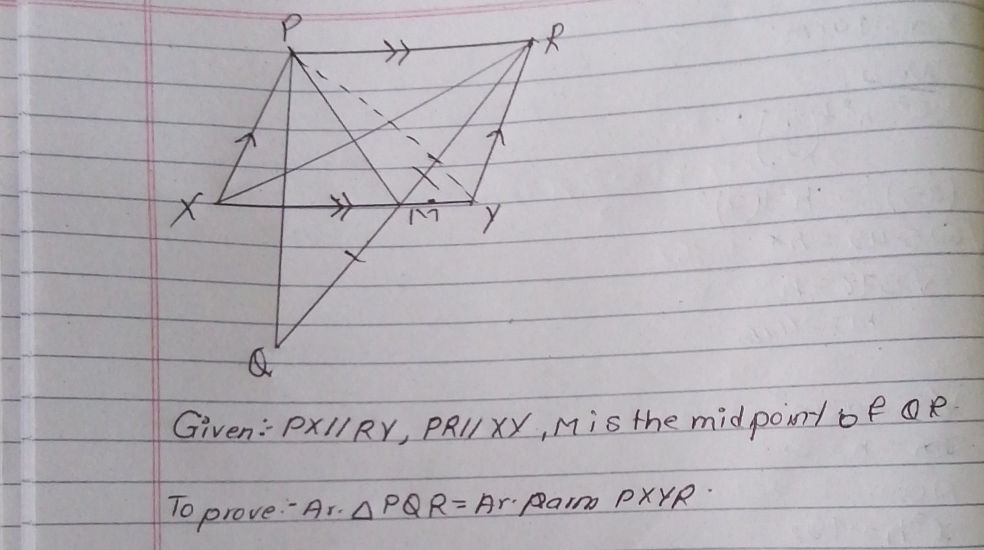 P
R
X
M
Y
Q
Given:- PX//RY, PR//XY, M is the midpoint of QR.
To prove:- Ar. △ PQR = Ar. parm PXYR.